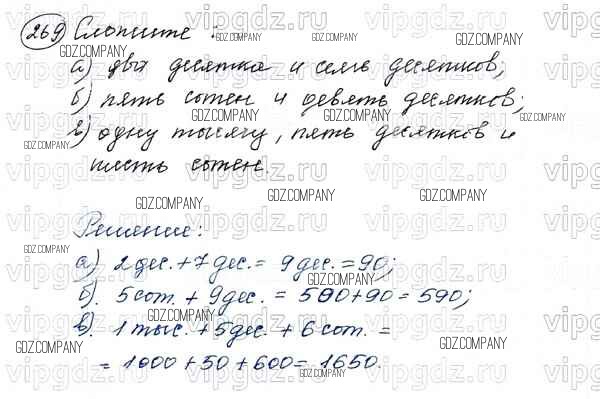 269 Сложите:
а) два десятка и семь десятков;
б) пять сотен и девять десятков;
в) одну тысячу, пять десятков и
шесть сотен.
Решение:
а) 2 дес. + 7 дес. = 9 дес. = 90;
б). 5 сот. + 9 дес. = 500 + 90 = 590;
в). 1 тыс. + 5 дес. + 6 сот. =
= 1000 + 50 + 600 = 1650.
vipgdz.ru
GDZ.COMPANY